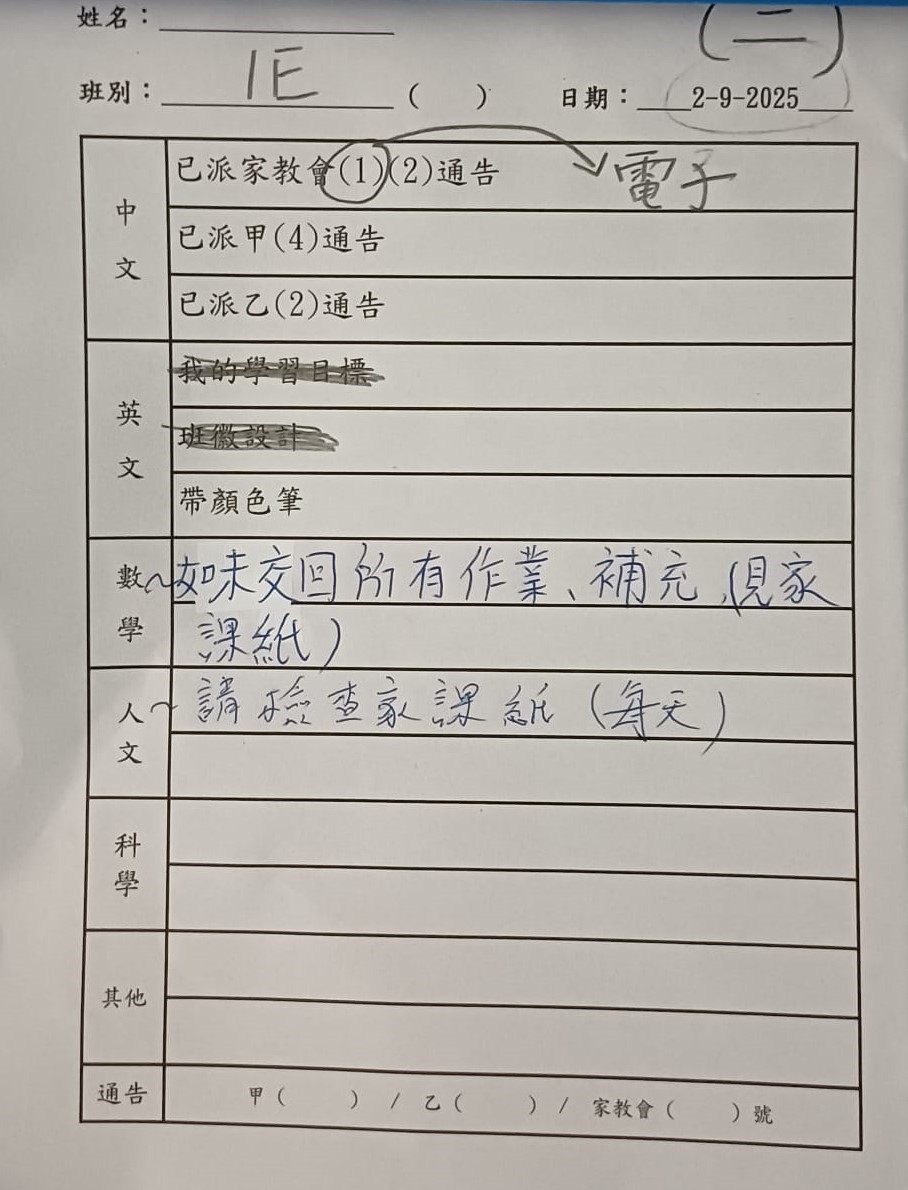 姓名：
(二)
班別： 1E ( ) 日期： 2-9-2025
中文
已派家教會(1)(2)通告 電子
已派甲(4)通告
已派乙(2)通告
英文
我的學習目標
班徽設計
帶顏色筆
數學
如未交回所有作業、補充,(見家
課紙)
人文
請檢查家課紙(每天)
科學
其他
通告
甲( ) / 乙( ) / 家教會( )號